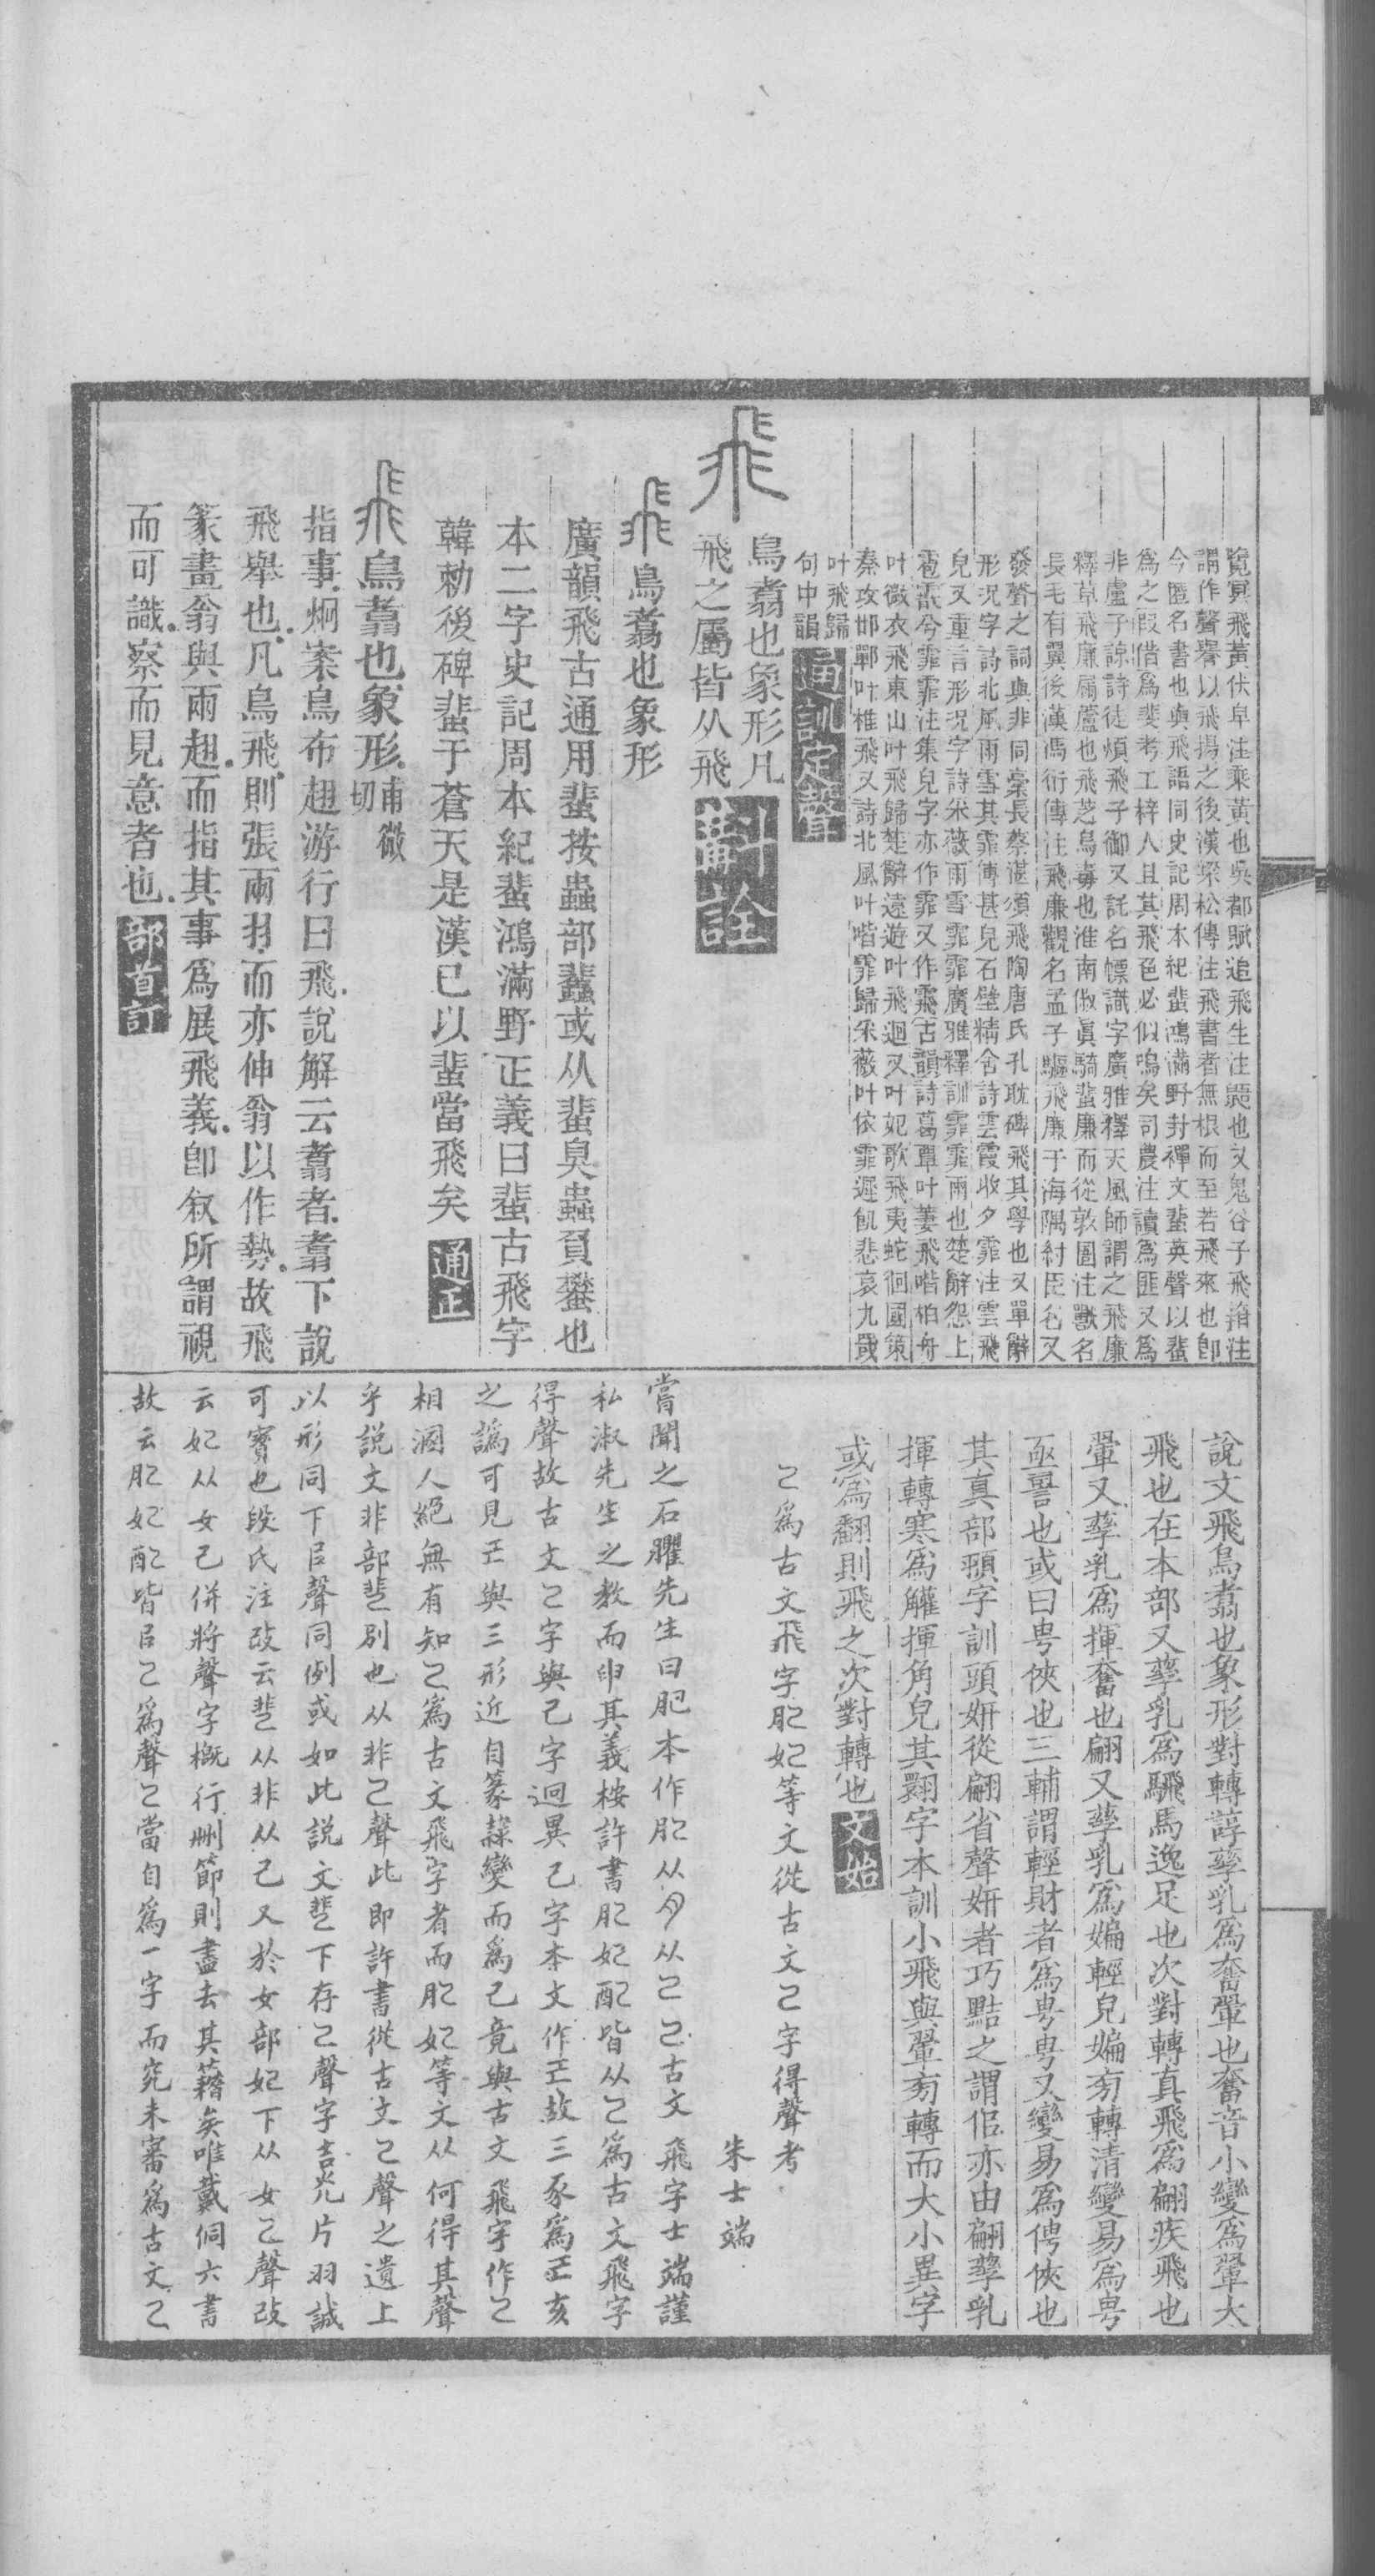 覽冥飛黃伏阜注乘黃也吳都賦追飛生注鼯也又鬼谷子飛箝注
謂作聲譽以飛揚之後漢梁松傳注飛書者無根而至若飛來也卽
今匿名書也與飛語同史記周本紀蜚鴻滿野封禪文蜚英聲以蜚
爲之叚借爲斐考工梓人且其飛色必似鳴矣司農注讀爲匪又爲
非盧子諒詩徒煩飛子御又託名幖識字廣雅釋天風師謂之飛廉
釋草飛廉屚蘆也飛芝烏毒也淮南俶眞騎蜚廉而從敦圄注獸名
長毛有翼後漢馮衍傳注飛廉觀名孟子驅飛廉于海隅紂臣名又
發聲之詞與非同槀長蔡湛須飛陶唐氏孔耽碑飛其學也又單辭
形況字詩北風雨雪其霏傳甚皃石壁精舍詩雲霞收夕霏注雲飛
皃又重言形況字詩采薇雨雪霏霏廣雅釋訓霏霏雨也楚辭怨上
雹霰兮霏霏注集皃字亦作霏又作䬠古韻詩葛覃叶萋飛喈柏舟
叶微衣飛東山叶飛歸楚辭遠遊叶飛迴又叶妃歌飛夷蛇徊國策
秦攻邯鄲叶椎飛又詩北風叶喈霏歸采薇叶依霏遲飢悲哀九歲
叶飛歸
句中韻 通訓定聲
飛 鳥翥也象形凡
飛之屬皆从飛 斠詮
飛 鳥翥也象形
廣韻飛古通用蜚按蟲部蠹或从蜚臭蟲負蠜也
本二字史記周本紀蜚鴻滿野正義曰蜚古飛字
韓勑後碑蜚于蒼天是漢已以蜚當飛矣 通正
飛 鳥翥也象形 甫微切
指事炯案鳥布翅游行曰飛說解云翥者翥下說
飛舉也凡鳥飛則張兩羽而亦伸翁以作勢故飛
篆畫翁與兩翅而指其事爲展飛義卽敘所謂視
而可識察而見意者也 部首訂
說文飛鳥翥也象形對轉諄孳乳爲奮翬也奮音小變爲翬大
飛也在本部又孳乳爲騛馬逸足也次對轉真飛爲翩疾飛也
翬又孳乳爲揮奮也翩又孳乳爲媥輕皃媥㫄轉清變易爲甹
亟䛐也或曰甹俠也三輔謂輕財者爲甹甹又變易爲俜俠也
其真部頨字訓頭妍從翩省聲妍者巧黠之謂侣亦由翩孳乳
揮轉寒爲觿揮角皃其翾字本訓小飛與翬㫄轉而大小異字
或爲翻則飛之次對轉也 文始
㔾爲古文飛字肥妃等文從古文㔾字得聲考
朱士端
嘗聞之石臞先生曰肥本作肥从月从㔾㔾古文飛字士端謹
私淑先生之教而申其義桉許書肥妃配皆从㔾爲古文飛字
得聲故古文㔾字與己字迥異己字本文作𢀒故三豕爲己亥
之譌可見𢀒與三形近自篆隸變而爲己竟與古文飛字作㔾
相溷人絕無有知㔾爲古文飛字者而肥妃等文从何得其聲
乎說文非部𩇫別也从非㔾聲此卽許書從古文㔾聲之遺上
以形同下㠯聲同例或如此說文𩇫下存㔾聲字吉光片羽誠
可寶也段氏注改云𩇫从非从己又於女部妃下从女㔾聲改
云妃从女己併將聲字槪行刪節則盡去其藉矣唯戴侗六書
故云肥妃配皆㠯㔾爲聲㔾當自爲一字而究未審爲古文㔾